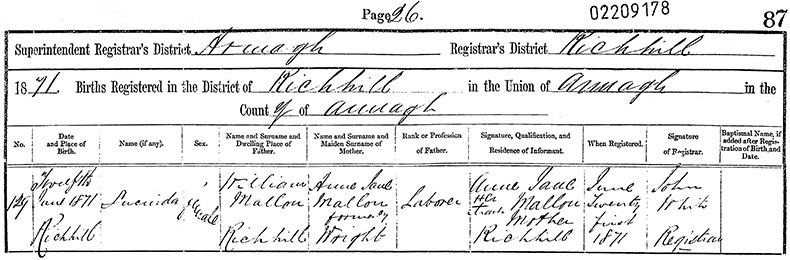 Page 26. 02209178 87
Superintendent Registrar's District Armagh Registrar's District Richhill
1871. Births Registered in the District of Richhill in the Union of Armagh in the
County of Armagh
No. Date and Place of Birth. Name (if any). Sex. Name and Surname and Dwelling Place of Father. Name and Surname and Maiden Surname of Mother. Rank or Profession of Father. Signature, Qualification, and Residence of Informant. When Registered. Signature of Registrar. Baptismal Name, if added after Registration of Birth, and Date.
129 Twelfth June 1871 Richhill Lucinda female William Mallon Richhill Anne Jane Mallon formerly Wright Laborer Anne Jane Mallon Her Mark Mother Richhill June Twenty first 1871 John White Registrar